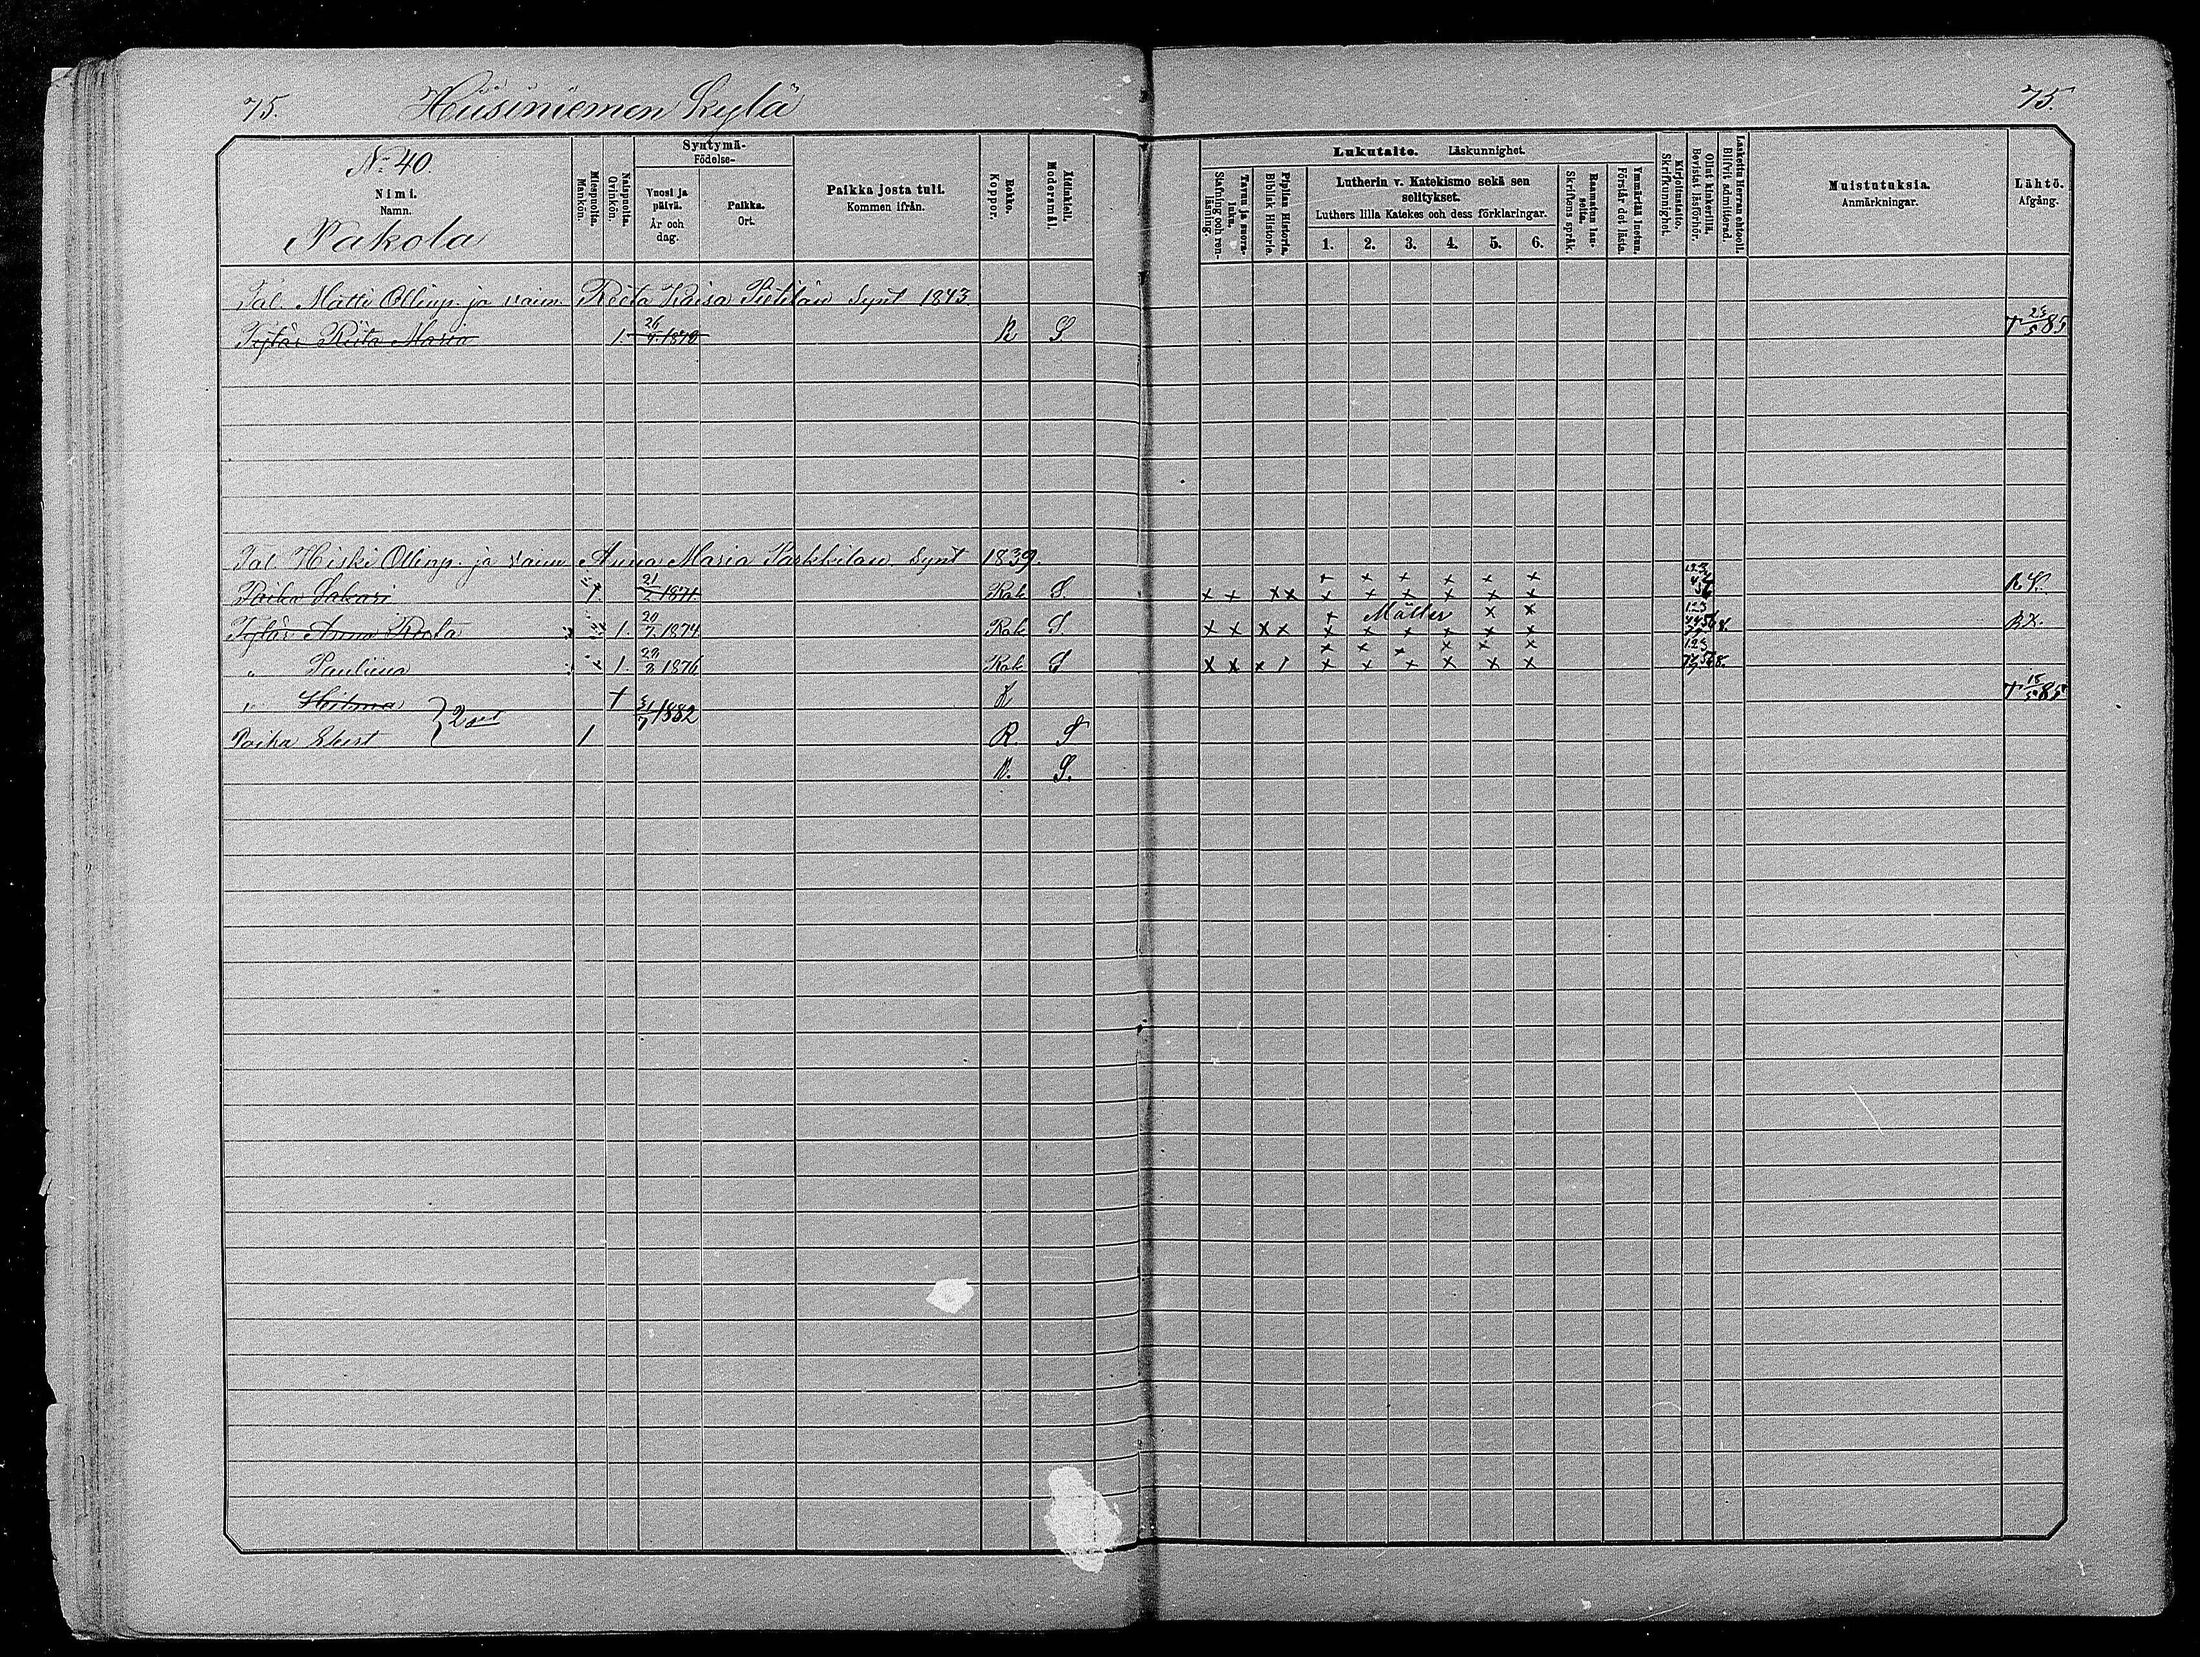 75. Hiisiniemen Kylä 75.
No 40.
Nimi.
Namn.
Nakola
Miespuolia.
Mankön.
Naispuolia.
Qvinkön.
Syntymä-
Födelse-
Vuosi ja päivä.
År och dag.
Paikka.
Ort.
Paikka josta tuli.
Kommen ifrån.
Rokko.
Koppor.
Äidinkieli.
Modersmål.
Lukutaito. Läskunnighet.
Tavuu ja suora-luku.
Stafning och ren-läsning.
Piplian Historia.
Biblisk Historia.
Lutherin v. Katekismo sekä sen selitykset.
Luthers lilla Katekes och dess förklaringar.
1. 2. 3. 4. 5. 6.
Raamatun lau-seita.
Skriftens språk.
Ymmärtää luetun.
Förstår det lästa.
Kirjoitustaito.
Skrifkunnighet.
Ollut kinkerillä.
Bevistat läsförhör.
Laskettu Herran ehtooll.
Blifvit admitterad.
Muistutuksia.
Anmärkningar.
Lähtö.
Afgång.
Tal. Matti Ollinp. ja vaim. Reeta Kaisa Pietilän Synt 1843
Tytär Riita Maria 1. 26/4 1870 R S † 23/5 85
Tal. Hiski Ollinp. ja vaim Anna Maria Parkkilan Synt 1839.
Poika Sakari 1. 21/2 1871 Rok S. x x x x x x x x x x
Tytär Anna Reeta 1. 20/7 1874 Rok S. x x x x x Mälter x x
" Pauliina 1. 1876 Rok S x x x 1 x x x x x x
" Hilma } 2set † 31/7 1882 R † 18/5 85
Poika Ebert 1 R. S
R. S.